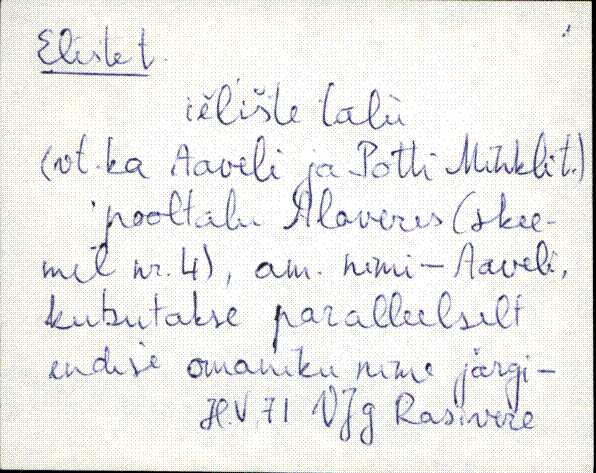 Eliste t.
iẽlište talù
(vt. ka Aaveli ja Potti-Mihkli t.)
pooltalu Alaveres (skee-
mil nr. 4), am. nimi - Aaveli,
kutsutakse paralleelselt
endise omaniku nime järgi -
H.V. 71 VJg Rasivere